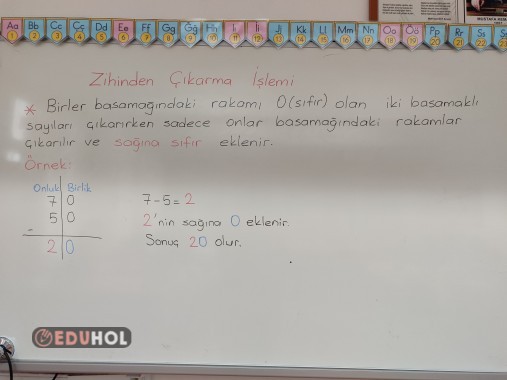 Aa Bb Cc Çc Dd Ee Ff Gg Ğğ Hh Iı İi Jj Kk Ll Mm Nn Oo Öö Pp Rr Ss
1 2 3 4 5 6 7 8 9 10 11 12 13 14 15 16 17 18 19 20 21 22 23
Zihinden Çıkarma İşlemi
* Birler basamağındaki rakamı 0 (sıfır) olan iki basamaklı
sayıları çıkarırken sadece onlar basamağındaki rakamlar
çıkarılır ve sağına sıfır eklenir.
Örnek:
Onluk Birlik
7 0
5 0
-
2 0
7-5=2
2'nin sağına 0 eklenir.
Sonuç 20 olur.
EDUHOL